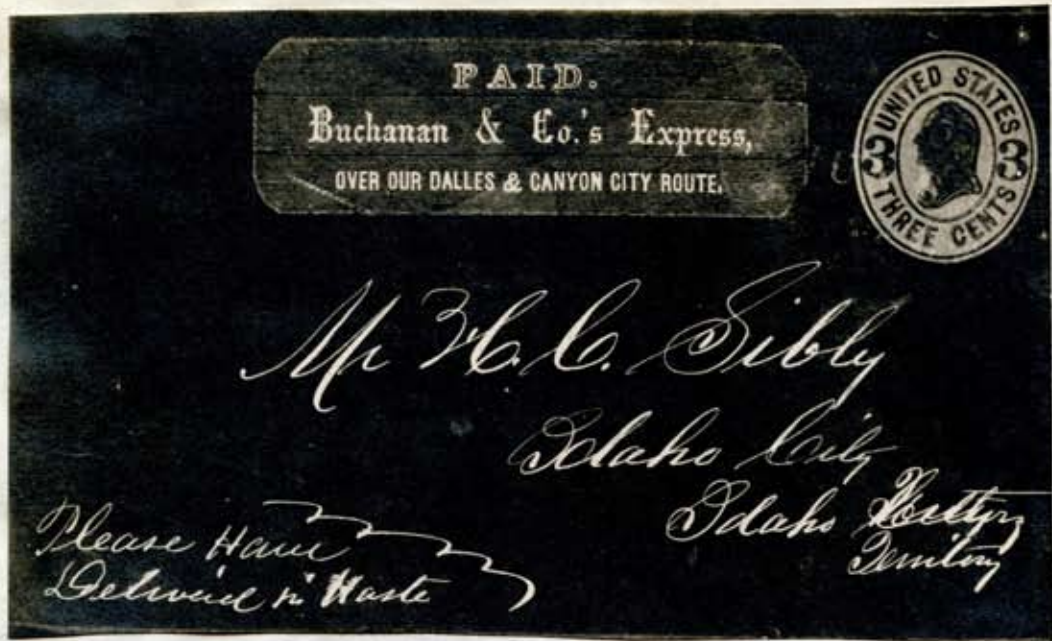 PAID.
Buchanan & Co.'s Express,
OVER OUR DALLES & CANYON CITY ROUTE.
UNITED STATES
3 3
THREE CENTS
Mr H. C. Sibly
Idaho City
Idaho
Territory
Please Have
Deliverd in Haste